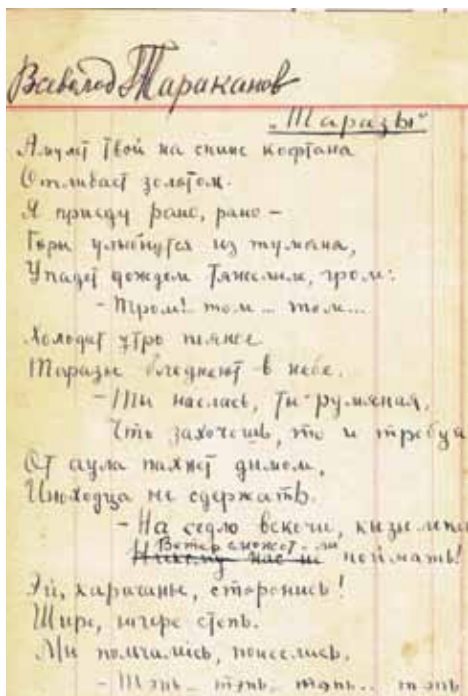 Всеволод Тараканов
"Таразы"
Амулет твой на спине кафтана
Отливает золотом.
Я приеду рано, рано –
Горы улыбнутся из тумана,
Упадет дождем тяжелым, гром:
– Тром! том... том...
Холодит утро
Таразы бледнеют в небе.
– Ты ты румяная,
Что захочешь, то и требуй
От аула пахнет дымом,
Иноходца не сдержать.
– На седло вскочи,
Ветер сможет ли
Никому нас не поймать!
Эй, сторонись!
Шире, шире степь.
Мы помчались, понеслись.
– Тэнь.. тэнь.. тэнь.. тэнь